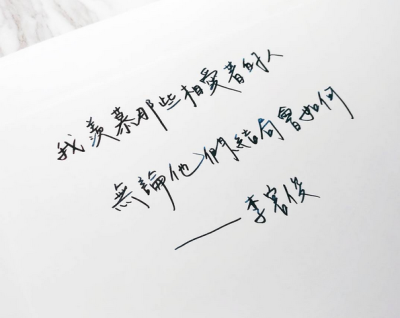 我羨慕那些相愛着的人
無論他們結局會如何
——李宏俊